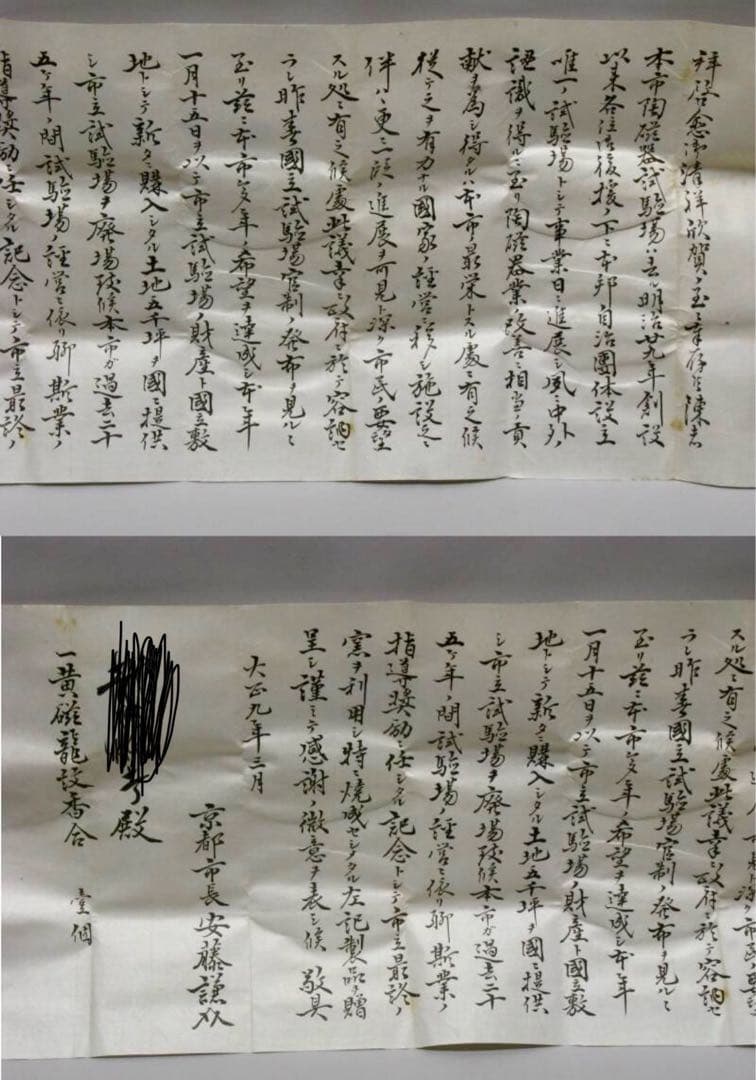 拝啓愈御清祥欣賀ノ至ニ奉存候陳者
本市陶磁器試験場ハ去ル明治廿九年創設
以来各位御後援ノ下ニ本邦自治團体設立
唯一ノ試験場トシテ事業日ニ進展シ夙ニ中外ノ
認識ヲ得ルニ至リ陶磁器業ノ改善ニ相当ノ貢
献為シ得タルハ本市最栄トスル處ニ有之候
従テ之ヲ有力ナル國家ノ経営ニ移シ施設之ニ
伴ハヾ更ニ一段ノ進展ヲ可見ト深ク市民ノ要望
スル処ニ有之候處此議幸ニ政府ニ於テ容認セ
ラレ昨春國立試験場官制ノ発布ヲ見ルニ
至リ茲ニ本市多年ノ希望ヲ達成シ本年
一月十五日ヲ以テ市立試験場ノ財産ト國立敷
地トシテ新タニ購入シタル土地五千坪ヲ國ニ提供
シ市立試験場ヲ廃場致候本市ガ過去二十
五ヶ年ノ間試験場ノ経営ニ依リ聊斯業ノ
指導奨励ニ任シタル記念トシテ市立最終ノ
スル処ニ有之候處此議幸ニ政府ニ於テ容認セ
ラレ昨春國立試験場官制ノ発布ヲ見ルニ
至リ茲ニ本市多年ノ希望ヲ達成シ本年
一月十五日ヲ以テ市立試験場ノ財産ト國立敷
地トシテ新タニ購入シタル土地五千坪ヲ國ニ提供
シ市立試験場ヲ廃場致候本市ガ過去二十
五ヶ年ノ間試験場ノ経営ニ依リ聊斯業ノ
指導奨励ニ任シタル記念トシテ市立最終ノ
窯ヲ利用シ特ニ焼成セシメタル左記製品ヲ贈
呈シ謹ミテ感謝ノ微意ヲ表シ候 敬具
大正九年三月
京都市長 安藤謙介
殿
一黄磁龍紋香合 壹個